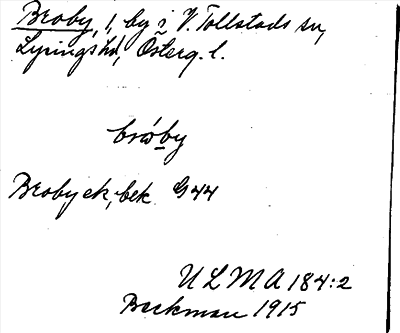 Broby, 1, by i V. Tollstads sn,
Lysings hd, Österg. l.
bro͡by
Broby ek, bek G44
ULMA 184:2
Beckman 1915